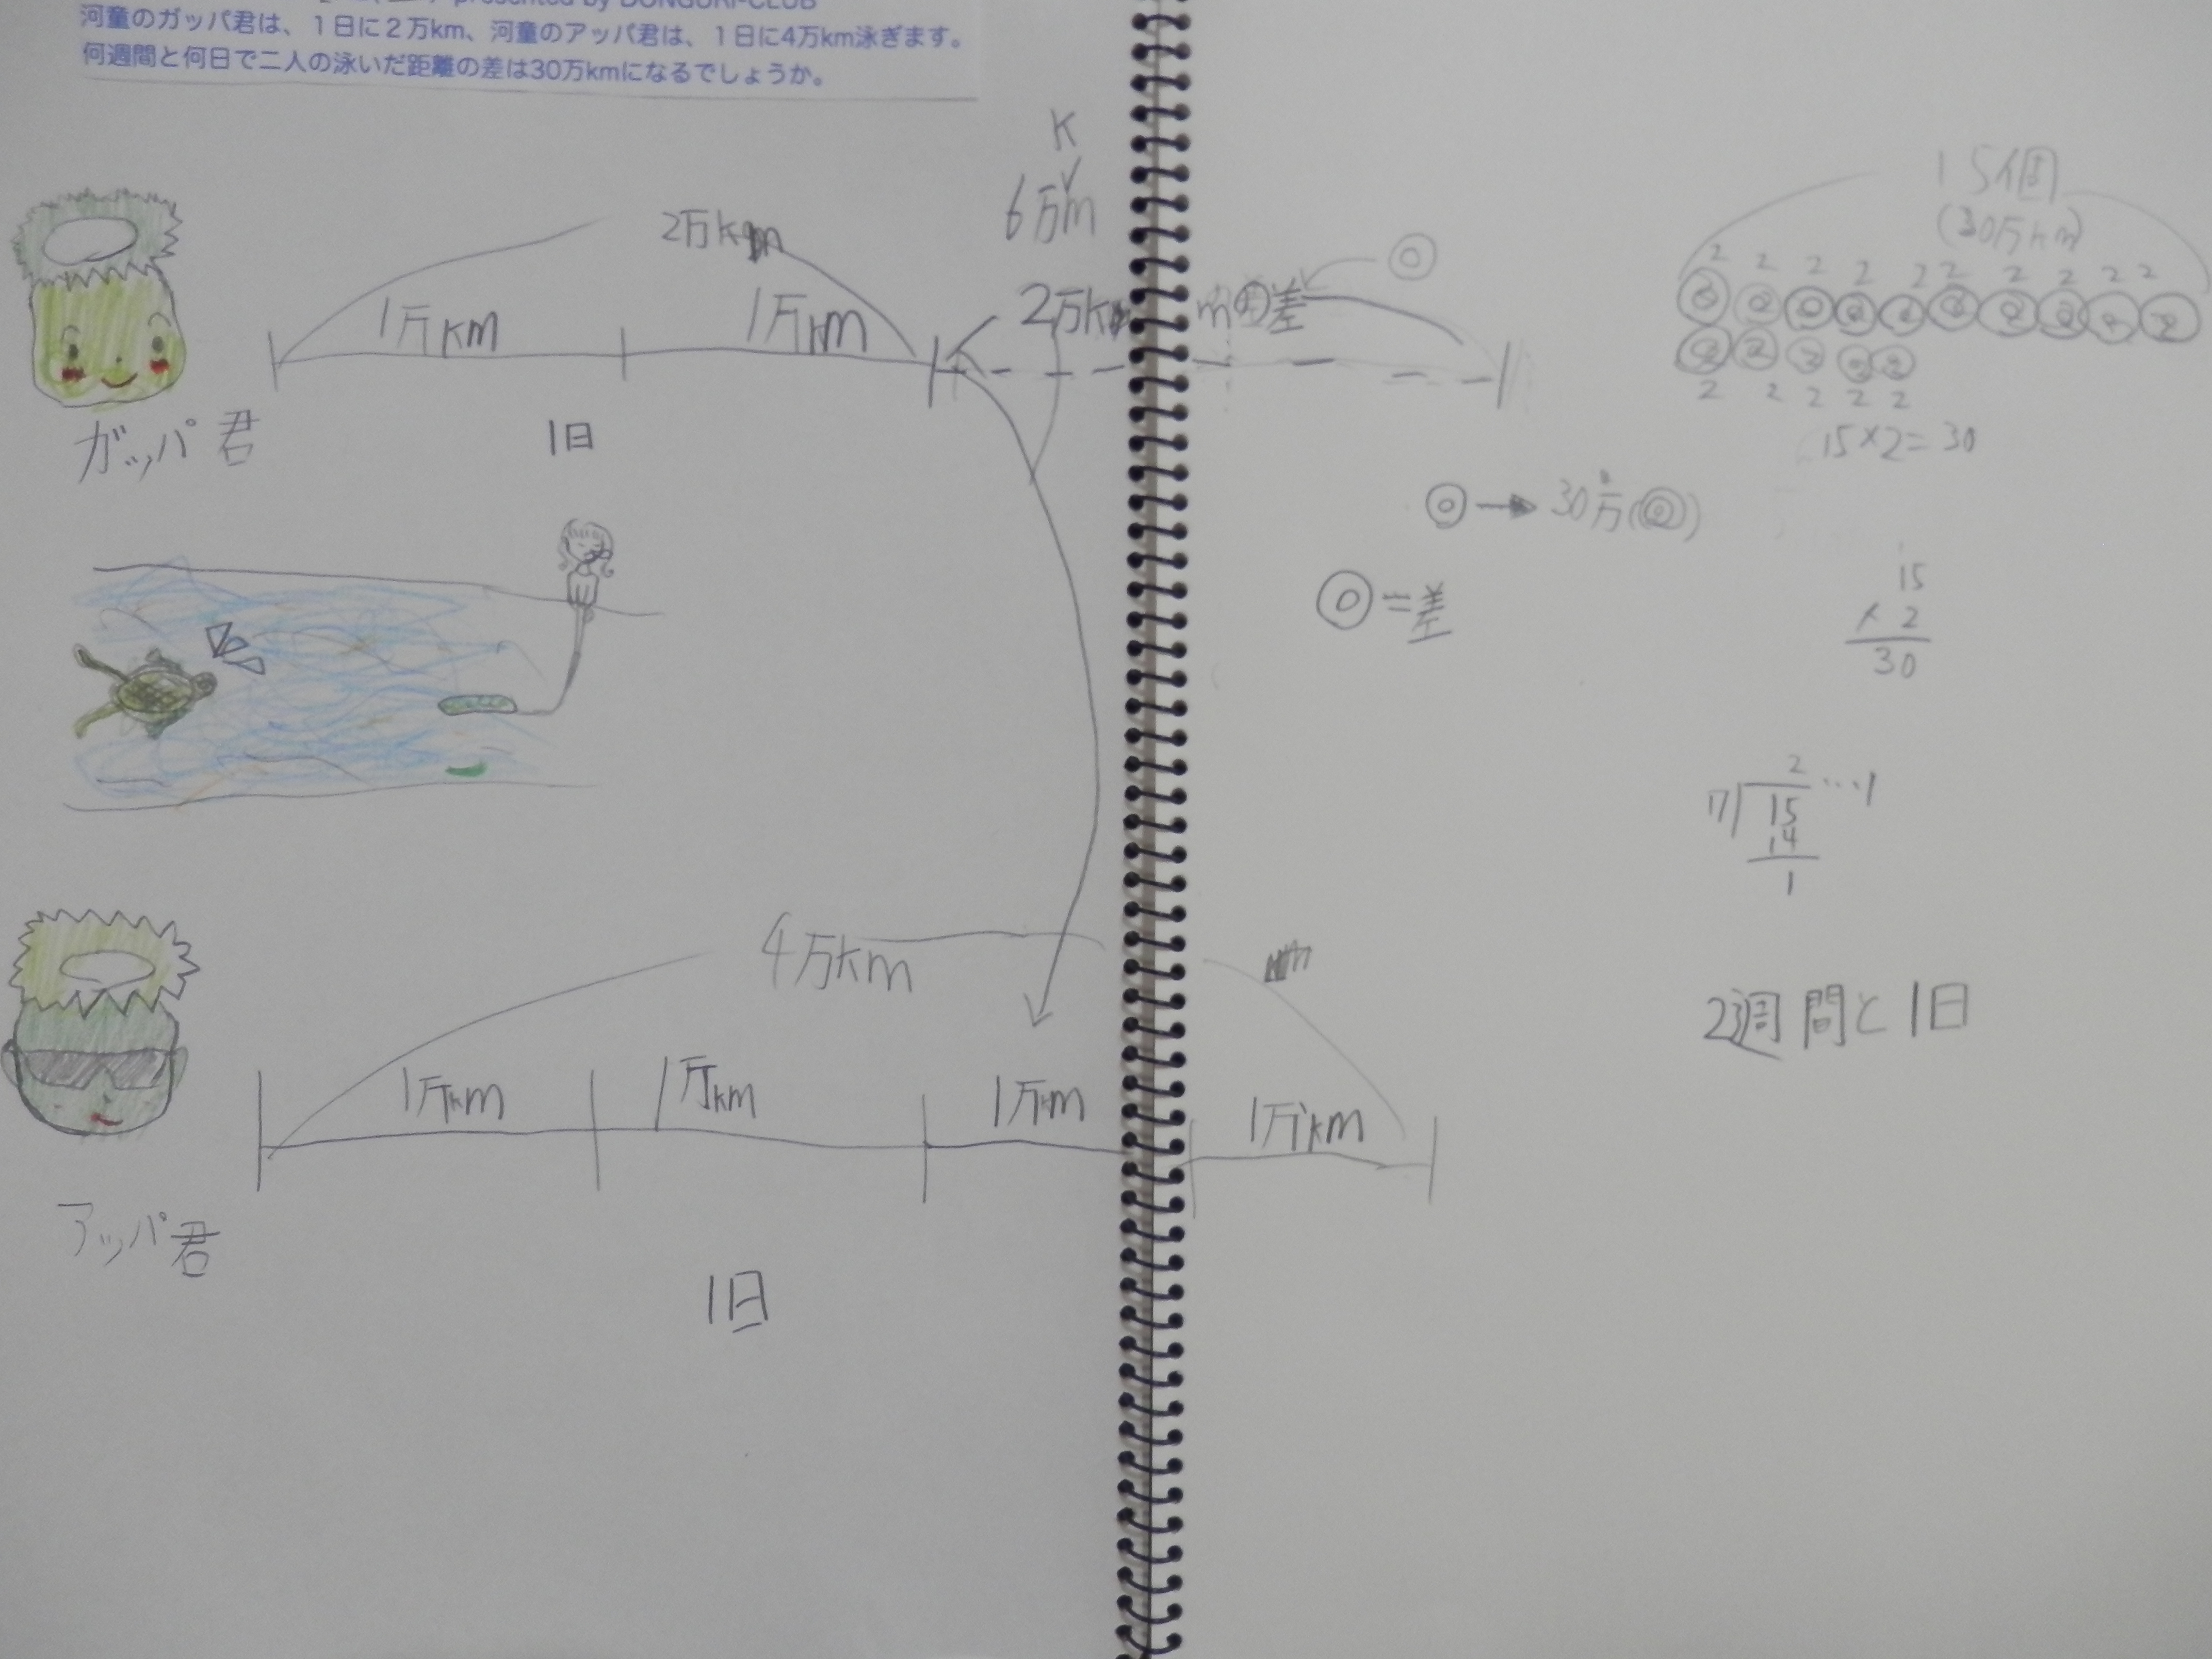 presented by DONGURI-CLUB
河童のガッパ君は、１日に２万km、河童のアッパ君は、１日に4万km泳ぎます。
何週間と何日で二人の泳いだ距離の差は30万kmになるでしょうか。
K
6万m
2万km
1万km
1万km
2万km
の差
ガッパ君
1日
4万km
1万km
1万km
1万km
1万km
アッパ君
1日
15個
(30万km)
2 2 2 2 2 2 2 2 2 2
2 2 2 2 2
15×2=30
◎→30万(◎)
◎=差
15
× 2
30
2…1
7)15
14
1
2週間と1日